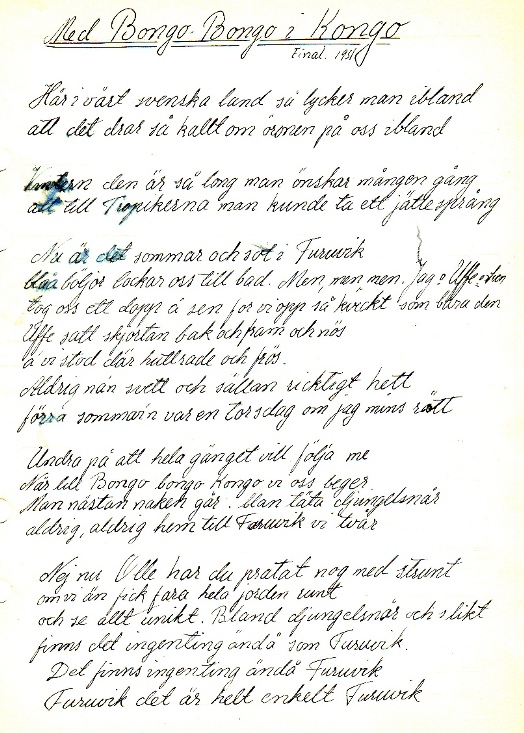 Med Bongo-Bongo i Kongo
Final. 1951
Här i vårt svenska land så tycker man ibland
att det drar så kallt om öronen på oss ibland
Vintern den är så lång man önskar mången gång
att till Tropikerna man kunde ta ett jättesprång
Nu är det sommar och sol i Furuvik
blåa böljor lockar oss till bad. Men, men, men. Jag o Uffe
tog oss ett dopp å sen for vi opp så kvickt som bara den
Uffe satt skjortan bak och fram och nös
å vi stod där huttrade och frös.
Aldrig nån svett och sällan ricktigt hett
förra sommar'n var en torsdag om jag mins rätt
Undra på att hela gänget vill följa me
När till Bongo bongo Kongo vi oss beger.
Man nästan naken går. blan täta djungelsnår
aldrig, aldrig hem till Furuvik vi
Nej nu Olle har du pratat nog med strunt
om vi än fick fara hela jorden runt
och se allt unikt. Bland djungelsnår och slikt
finns det ingenting ändå som Furuvik.
Det finns ingenting ändå Furuvik
Furuvik det är helt enkelt Furuvik